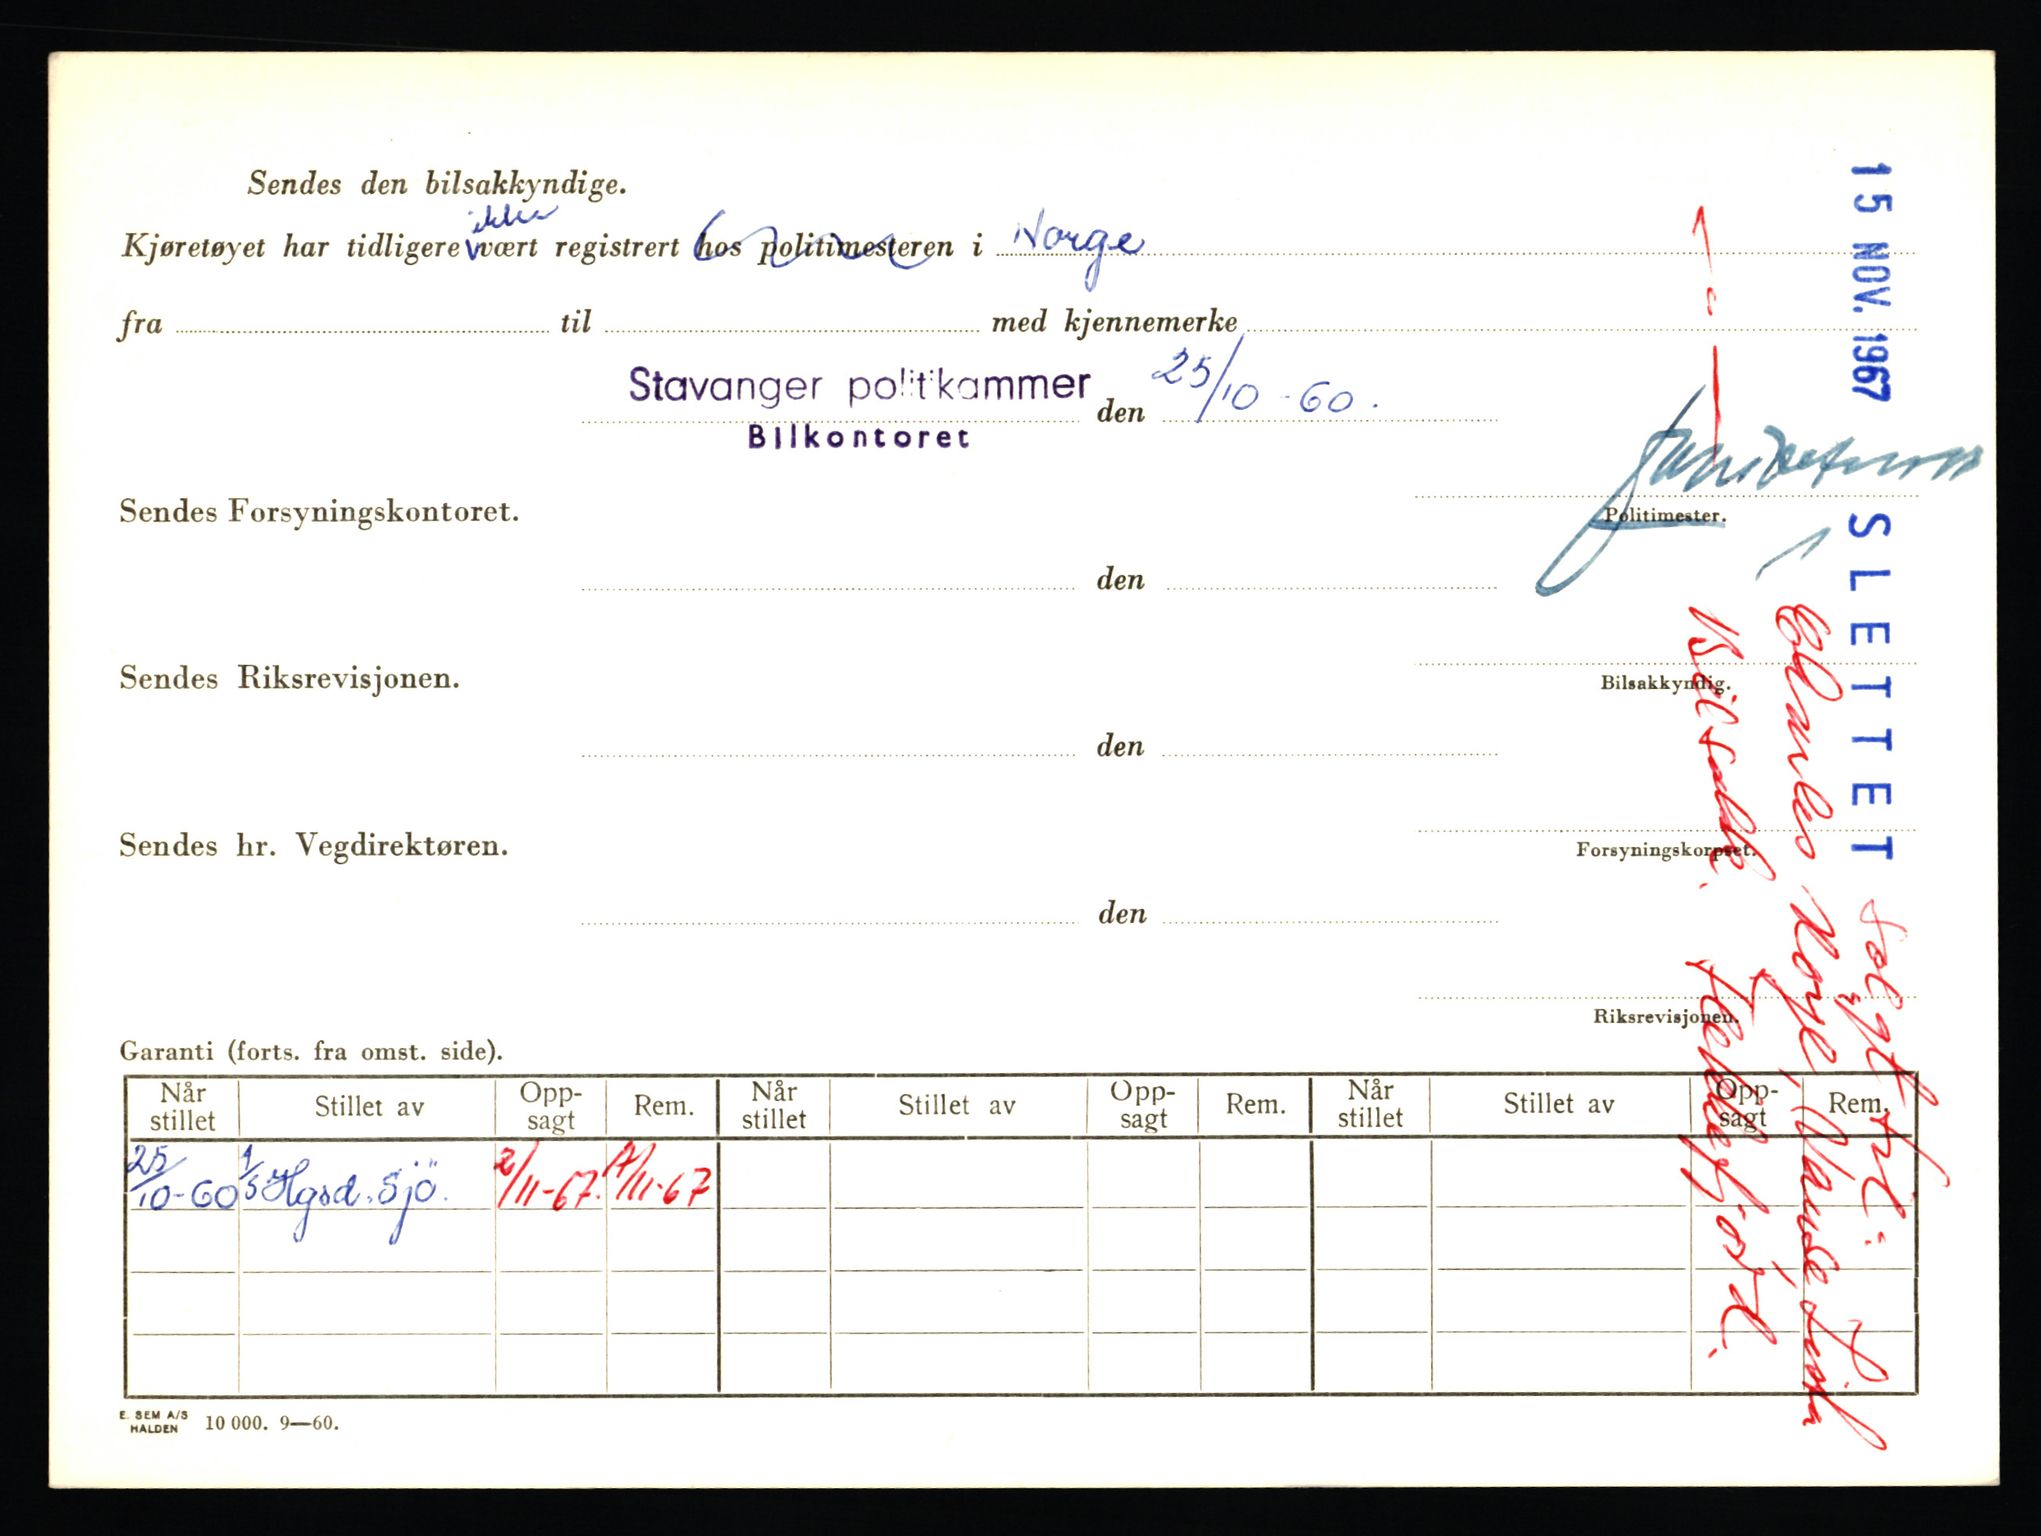 Sendes den bilsakkyndige.
ikke
Kjøretøyet har tidligere vært registrert hos politimesteren i Norge
fra til med kjennemerke
Stavanger politikammer den 25/10-60.
Bilkontoret
Sendes Forsyningskontoret.
Politimester.
den
Sendes Riksrevisjonen.
Bilsakkyndig.
den
Sendes hr. Vegdirektøren.
Forsyningskorpset.
den
Riksrevisjonen.
Garanti (forts. fra omst. side).
Når stillet Stillet av Opp-sagt Rem. Når stillet Stillet av Opp-sagt Rem. Når stillet Stillet av Opp-sagt Rem.
25/10-60 1/5 Hgsd. Sjö. 2/11-67. 14/11-67
E. SEM A/S
HALDEN
10 000. 9—60.
15 NOV. 1967 SLETTET Solgt til:
Flekkefjord.